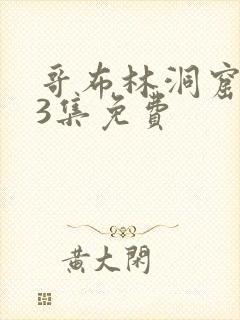 哥布林洞窟
3集免费
黄大閑